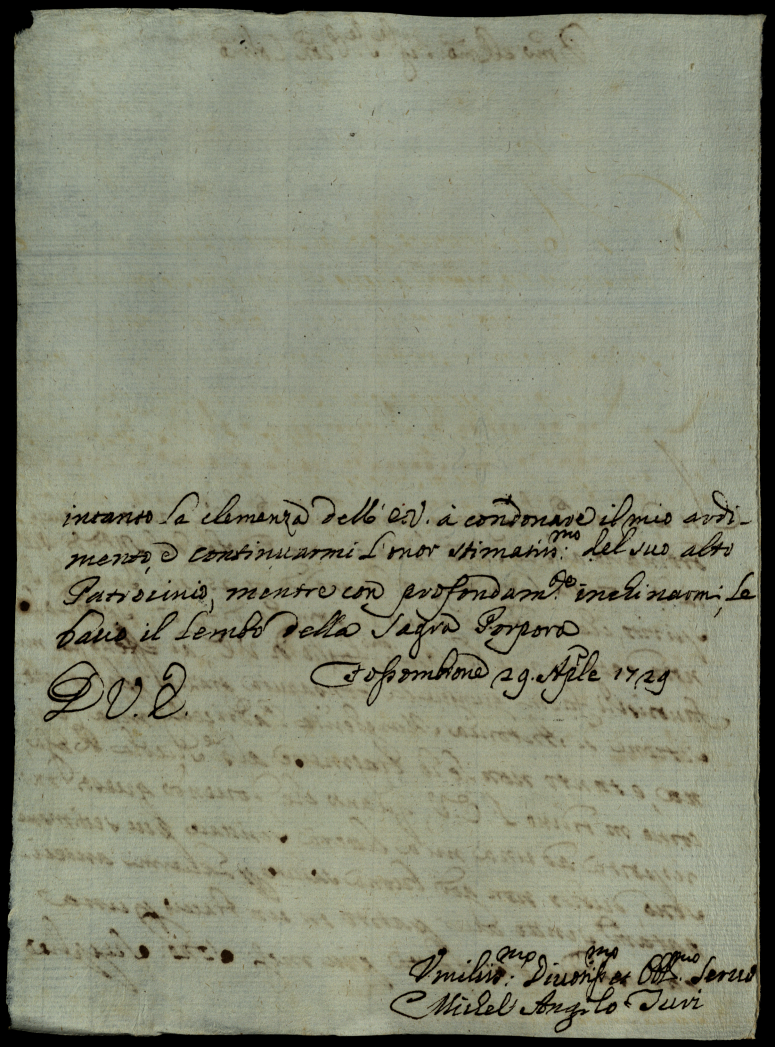 intanto la clemenza dell' E.V. à condonare il mio ardi-
mento, e continuarmi l'onor stimatiss:mo del suo alto
Patrocinio, mentre con profondam:te inchinarmi, le
bacio il lembo della Sagra Porpora
Fossombrone 29. Aple 1729
D V. E.
Vmiliss:mo Divotiss:mo et Obb:mo Servo
Michel Angelo